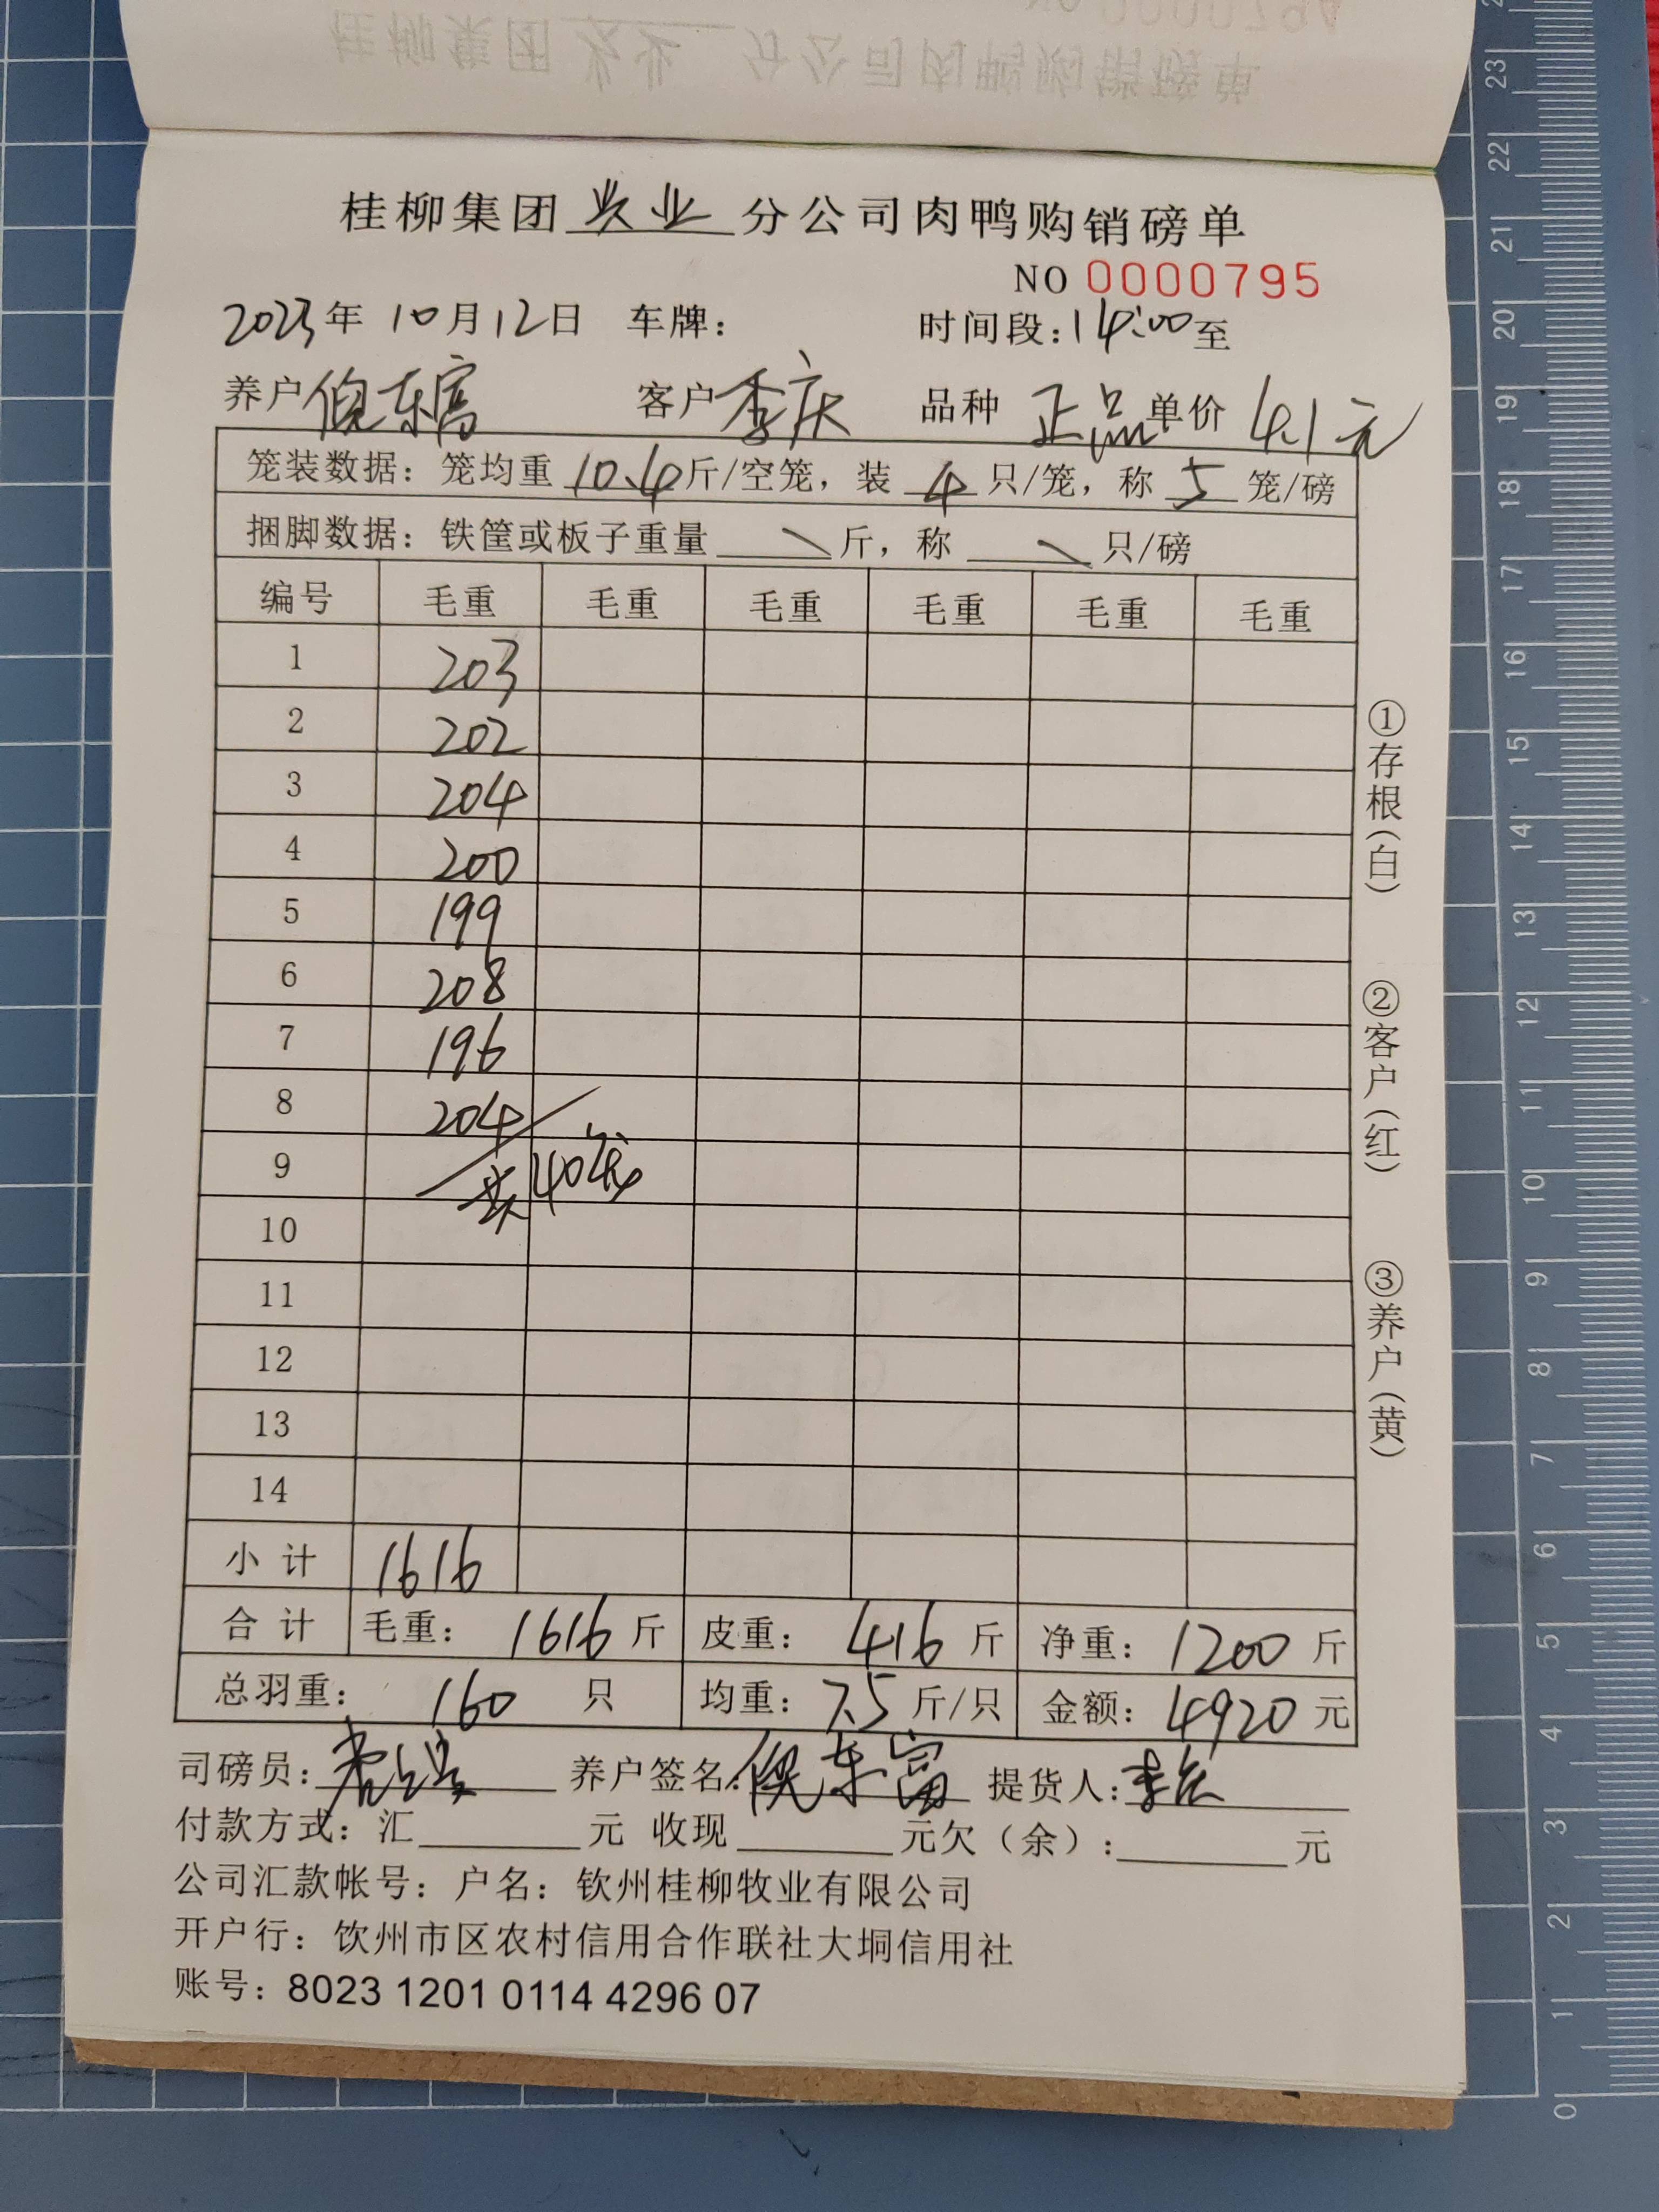 桂柳集团兴业分公司肉鸭购销磅单
NO 0000795
2023年 10月12日 车牌： 时间段：14:00至
养户 倪东富 客户 李庆 品种 正品 单价 4.1元
笼装数据：笼均重 10.4 斤/空笼，装 4 只/笼，称 5 笼/磅
捆脚数据：铁筐或板子重量 \ 斤，称 \ 只/磅
编号 毛重 毛重 毛重 毛重 毛重 毛重
1 203
2 202
3 204
4 200
5 199
6 208
7 196
8 204
9 共40笼
10
11
12
13
14
小计 1616
合计 毛重：1616斤 皮重：416斤 净重：1200斤
总羽重：160 只 均重：7.5斤/只 金额：4920元
司磅员： 养户签名：倪东富 提货人：李庆
付款方式：汇 元 收现 元欠（余）： 元
公司汇款帐号：户名：钦州桂柳牧业有限公司
开户行：饮州市区农村信用合作联社大垌信用社
账号：8023 1201 0114 4296 07
①存根（白）
②客户（红）
③养户（黄）
23
22
21
20
19
18
17
16
15
14
13
12
11
10
9
8
7
6
5
4
3
2
1
0